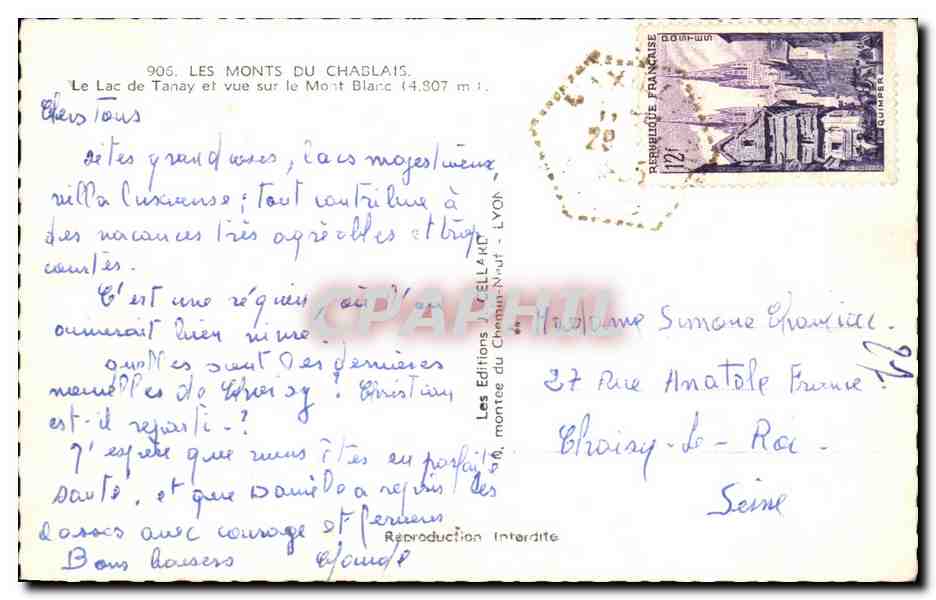 906. LES MONTS DU CHABLAIS.
Le Lac de Tanay et vue sur le Mont Blanc (4.807 m.).
Chers Tous
Sites grandioses, lacs majestueux,
villa luxueuse; tout contribue à
des vacances très agréables et trop
courtes.
C'est une région, où l'on
aimerait bien vivre.
quelles sont les dernières
nouvelles de Choisy? Christian
est-il reparti-?
J'espère que vous êtes en parfaite
santé, et que Danièle a repris les
classes avec courage et
Bons baisers Claude
Reproduction Interdite
Les Editions J. CELLARD
montée du Chemin-Neuf - LYON
REPUBLIQUE FRANÇAISE
POSTES
12f
QUIMPER
11
29
Madame Simone
27 Rue Anatole France
Choisy-Le-Roi.
Seine
CPAPHIL